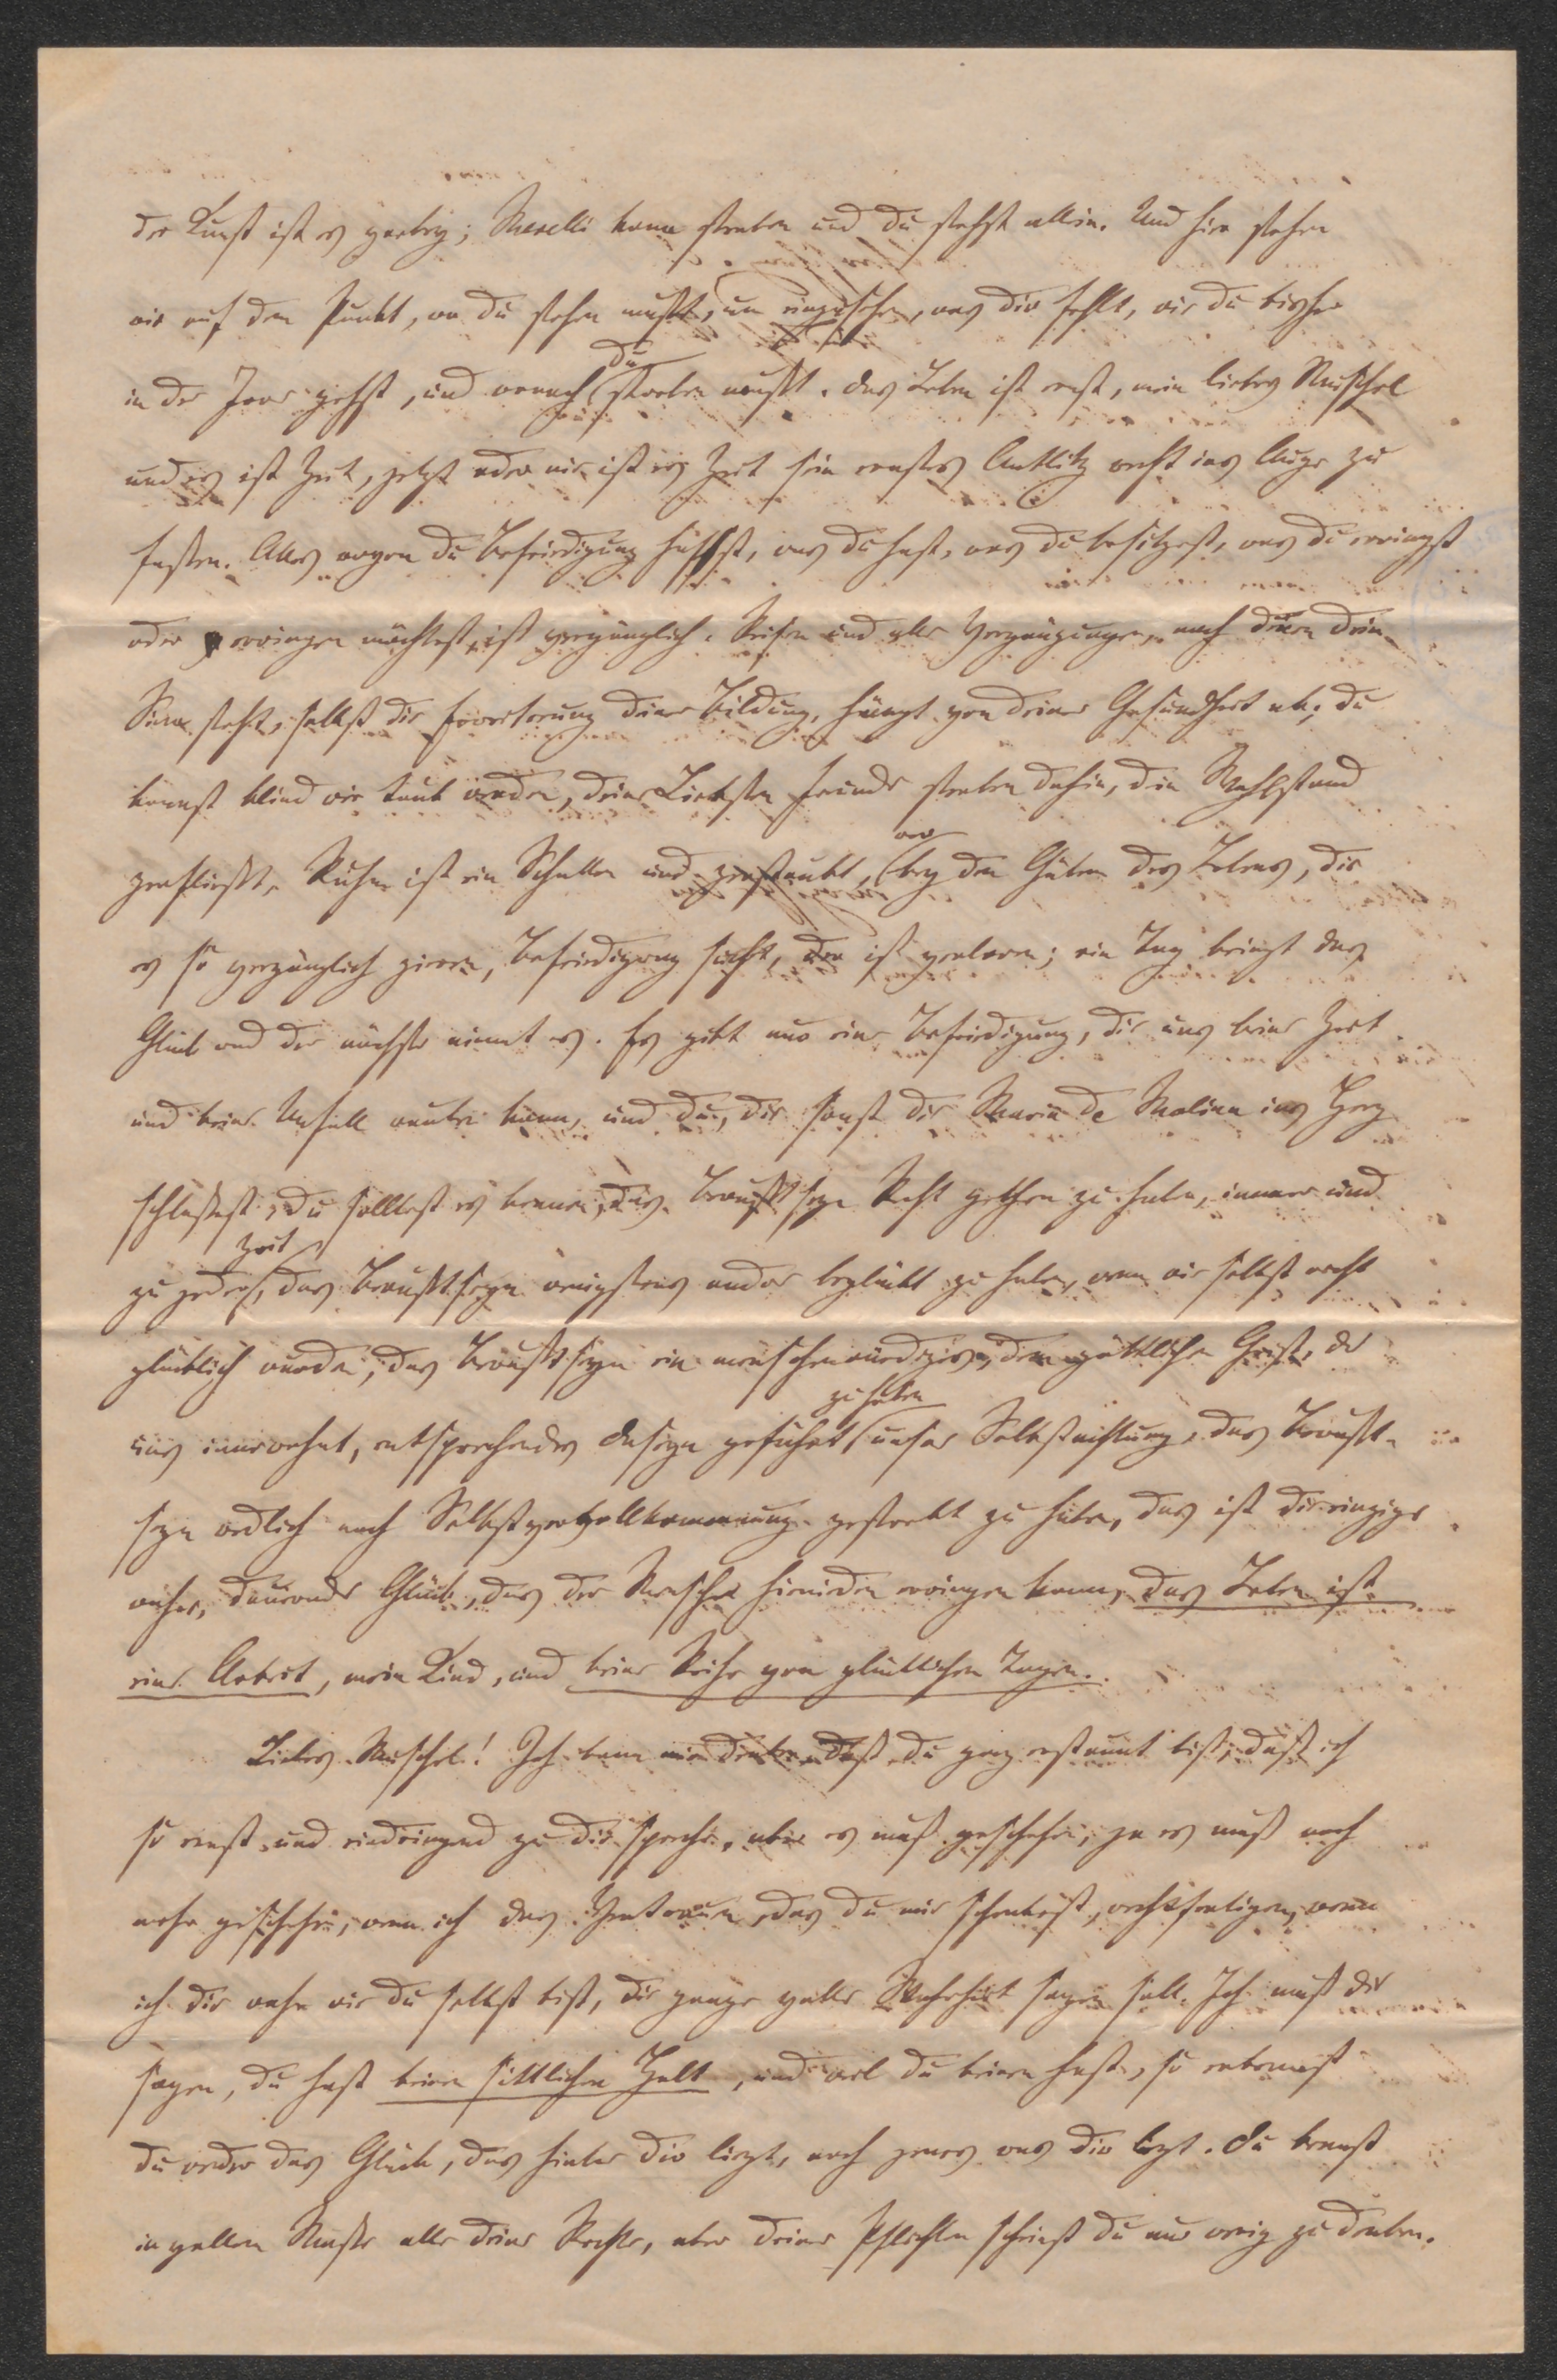 der Kunst ist es vorbey; Merelli kann sterben und du stehst allein. Und hier stehen
wir auf dem Punkt, wo du stehen mußt, um einzusehen, was dir fehlt, wie du bisher
in der Irre gehst, und wonach du streben mußt. Das Leben ist ernst, mein liebes Muschel
und es ist Zeit, jetzt oder nie ist es Zeit sein ernstes Antlitz recht ins Auge zu
fassen. Alles worin du Befriedigung suchst, was du hast, was du besitzest, was du erringst
oder erringen möchtest, ist vergänglich. Reisen und alle Vergnügungen, nach denen dein
Sinn steht, selbst die Erweiterung deiner Bildung, hängt von deiner Gesundheit ab; du
kannst blind wie taub werden, deine Liebsten Freunde sterben dahin, dein Wohlstand
zerfließt, Ruhm ist ein Schall und zerstaubt, wer bey den Gütern des Lebens, die
es so vergänglich zieren, Befriedigung sucht, der ist verloren; ein Tag bringt das
Glück und der nächste nimmt es. Es gibt nur eine Befriedigung, die uns keine Zeit
und keine Unfall rauben kann, und du, die sonst die Maria de Molina ins Herz
schlossest, du solltest es kennen, das Bewußtseyn Recht gethan zu haben, immer und
zu jeder Zeit, das Bewußtseyn wenigstens andre beglückt zu haben, wenn wir selbst nicht
glücklich wurden, das Bewußtseyn ein menschenwürdiges, dem göttlichen Geist, der
uns innewohnt, entsprechendes Daseyn geführt zu haben unsre Selbstachtung, das Bewußt-
seyn redlich nach Selbstvervollkommnung gestrebt zu haben, das ist die einzige
wahre, dauernde Glück, das der Mensch hienieden erringen kann, das Leben ist
eine Arbeit, mein Kind, und keine Reihe von glücklichen Tagen.
Liebes Muschel! Ich kann mir denken, daß du ganz erstaunt bist, daß ich
so ernst und eindringend zu dir spreche, aber es muß geschehen, ja es muß noch
mehr geschehen, wenn ich das Vertrauen, das du mir schenkest, rechtfertigen, wenn
ich dir wahr wie du selbst bist, die ganze volle Wahrheit sagen soll. Ich muß dir
sagen, du hast keinen sittlichen Halt, und weil du keinen hast, so erkennst
du weder das Glück, das hinter dir liegt, noch jenes was dir liegt. Du kennst
in vollem Maße alle deine Rechte, aber deine Pflichten scheinst du nur wenig zu denken.